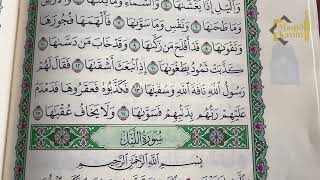 وَٱلَّيْلِ إِذَا يَغْشَىٰهَا ۝ وَٱلسَّمَآءِ وَمَا بَنَىٰهَا ۝ وَٱلْأَرْضِ
وَمَا طَحَىٰهَا ۝ وَنَفْسٍ وَمَا سَوَّىٰهَا ۝ فَأَلْهَمَهَا فُجُورَهَا
وَتَقْوَىٰهَا ۝ قَدْ أَفْلَحَ مَن زَكَّىٰهَا ۝ وَقَدْ خَابَ مَن دَسَّىٰهَا ۝
كَذَّبَتْ ثَمُودُ بِطَغْوَىٰهَآ ۝ إِذِ ٱنۢبَعَثَ أَشْقَىٰهَا ۝ فَقَالَ لَهُمْ
رَسُولُ ٱللَّهِ نَاقَةَ ٱللَّهِ وَسُقْيَٰهَا ۝ فَكَذَّبُوهُ فَعَقَرُوهَا فَدَمْدَمَ
عَلَيْهِمْ رَبُّهُم بِذَنۢبِهِمْ فَسَوَّىٰهَا ۝ وَلَا يَخَافُ عُقْبَٰهَا ۝
سُورَةُ ٱللَّيْلِ
بِسْمِ ٱللَّهِ ٱلرَّحْمَٰنِ ٱلرَّحِيمِ